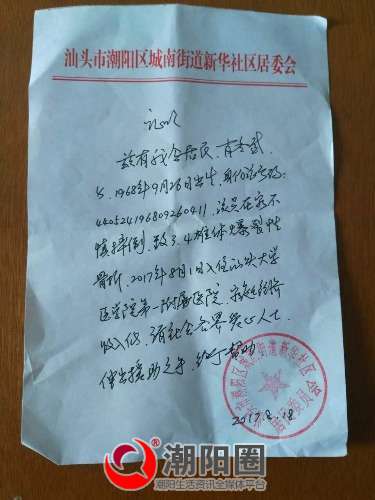 汕头市潮阳区城南街道新华社区居委会
证明
兹有我会居民,肖
女,1968年9月26日出生,身份证号码:
440524196809260411,该员在家不
慎摔倒,致3.4椎体爆裂性
骨折,2017年8月1日入住汕头大学
医学院第一附属医院,家庭经济
收入低,请社会各界热心人士
伸出援助之手,给予帮助
2017.8.18
街道新华社区
潮阳圈
潮阳生活资讯全媒体平台